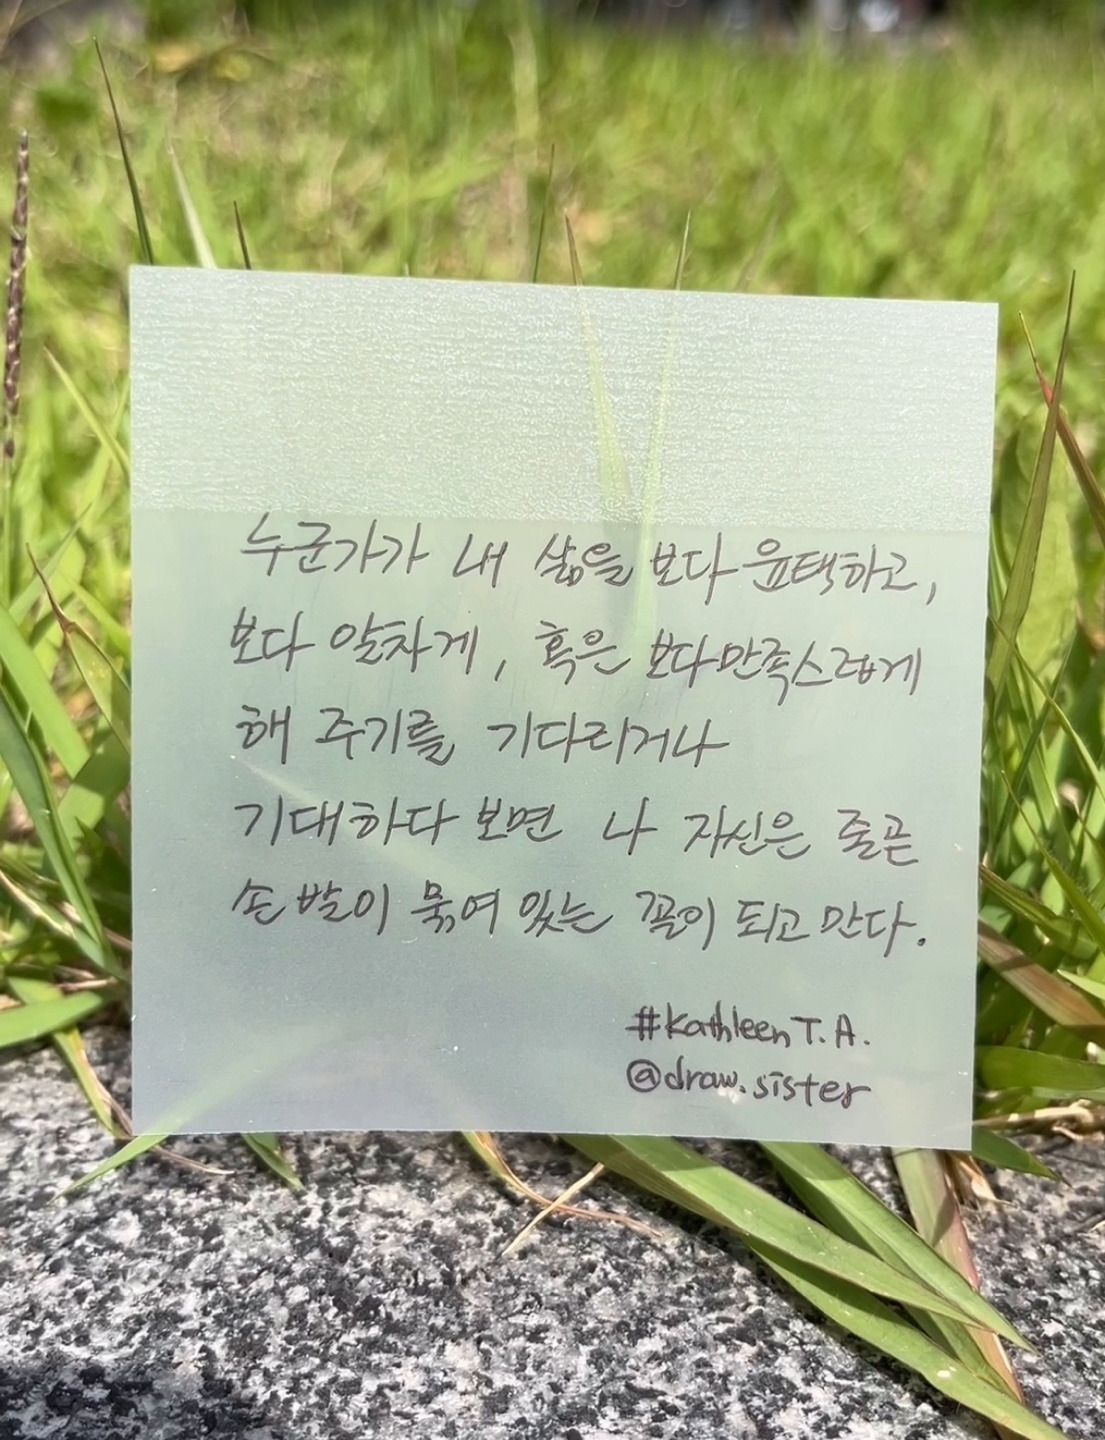 누군가가 내 삶을 보다 윤택하고,
보다 알차게, 혹은 보다 만족스럽게
해 주기를 기다리거나
기대하다 보면 나 자신은 줄곧
손발이 묶여 있는 꼴이 되고 만다.
#Kathleen T. A.
@draw.sister